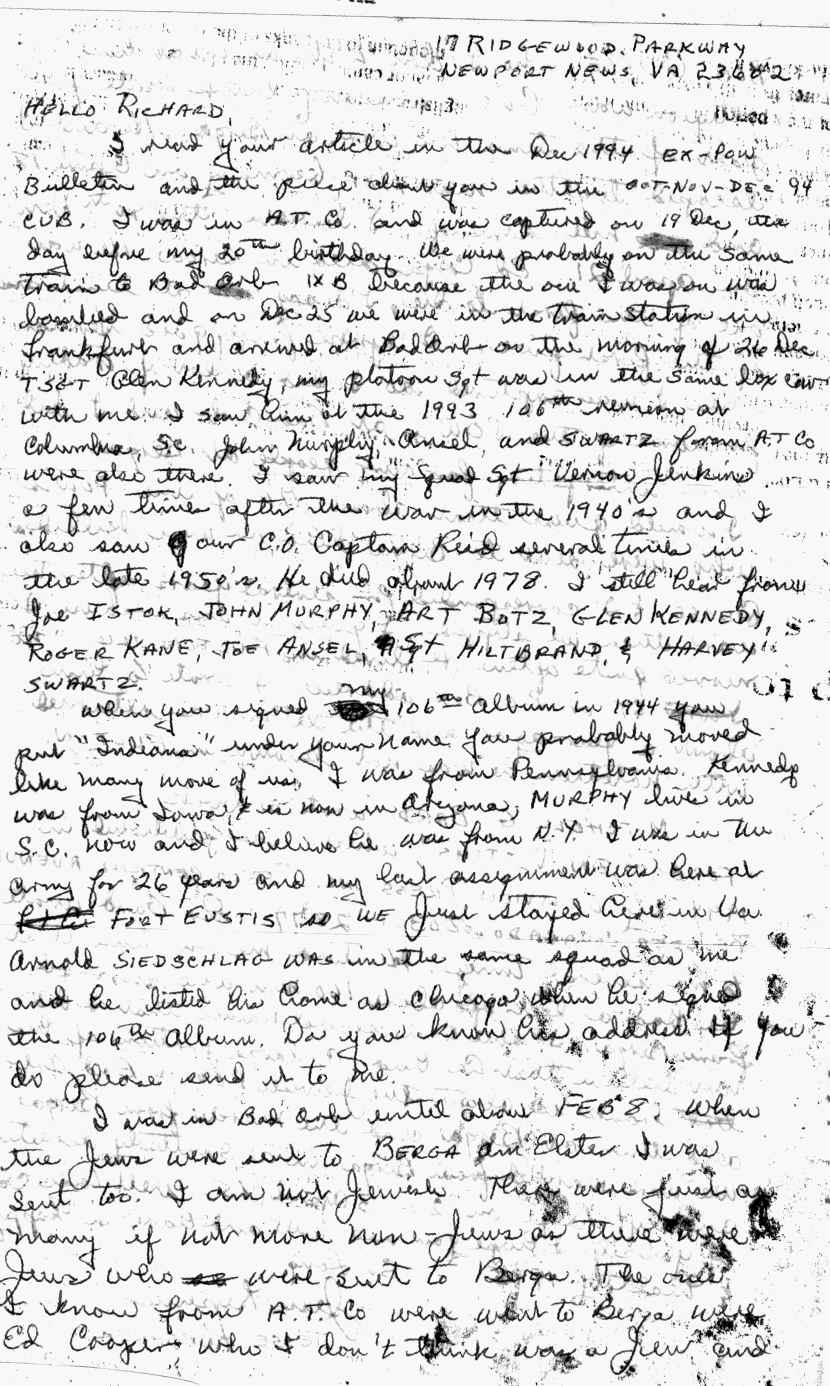 17 RIDGEWOOD PARKWAY
NEWPORT NEWS, VA 23602
HELLO RICHARD,
I read your article in the Dec 1994 EX-POW
Bulletin and the piece about you in the OCT-NOV-DEC 94
CUB. I was in A.T. Co. and was captured on 19 Dec, the
day before my 20th birthday. We were probably on the same
train to Bad Orb IX B because the one I was on was
bombed and on Dec 25 we were in the train station in
Frankfurt and arrived at Bad Orb on the morning of 26 Dec
T Sgt Glen Kennedy, my platoon Sgt was in the same box car
with me. I saw him at the 1993 106th reunion at
Columbia, SC. John Murphy, Ansel, and SWARTZ from A.T Co
were also there. I saw my Squad Sgt Vernon Jenkins
a few times after the war in the 1940's and I
also saw our C.O. Captain Reid several times in
the late 1950's. He died about 1978. I still hear from
Joe ISTOK, JOHN MURPHY, ART BOTZ, GLEN KENNEDY,
ROGER KANE, JOE ANSEL, Sgt HILTBRAND, & HARVEY
SWARTZ.
When you signed my 106th album in 1944 you
put "Indiana" under your name. You probably moved
like many more of us. I was from Pennsylvania. Kennedy
was from Iowa, & is now in Arizona, MURPHY lives in
S.C. now and I believe he was from N.Y. I was in the
army for 26 years and my last assignment was here at
FORT EUSTIS so WE Just stayed here in Va.
Arnold SIEDSCHLAG WAS in the same squad as me
and he listed his home as Chicago when he signed
the 106th album. Do you know his address. If you
do please send it to me.
I was in Bad Orb until about FEB 8, when
the Jews were sent to BERGA am Elster I was
sent too. I am not Jewish. There were just as
many if not more non-Jews as there were
Jews who were sent to Berga. The ones
I know from A.T. Co were went to Berga were
Ed Cooper who I don't think was a Jew and